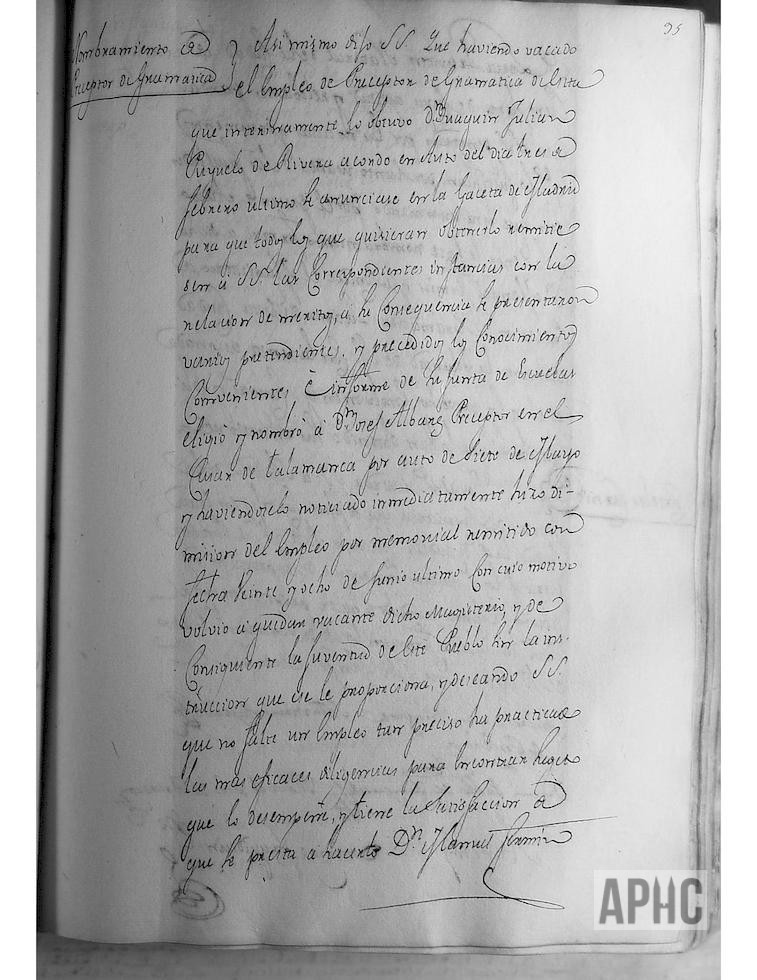 95
Nombramiento de
Preceptor de Gramatica
Asi mismo dijo S.S. Que haviendo vacado
el Empleo de Preceptor de Gramatica de esta
que interinamente lo obtuvo Dn Juaquin Julian
Puyuelo de Rivera acordo en Auto del dia tres de
febrero ultimo se anunciase en la Gaceta de Madrid
para que todos los que quisieran obtenerlo remitie
sen a S.S. las Correspondientes instancias con la
relacion de meritos, a su Consequencia se presentaron
varios pretendientes, y precedidos los Conocimientos
Convenientes è informe de la Junta de Escuelas
eligió y nombró á Dn Josef Albarez Preceptor en el
de Salamanca por auto de Siete de Mayo
y haviendoselo noticiado inmediatamente hizo di-
mision del Empleo por memorial remitido con
fecha Veinte y ocho de Junio ultimo Con cuio motivo
volvio á quedar vacante dicho Magisterio, y de
Consiguiente la Juventud de este Pueblo sin la ins-
truccion que se le proporciona, y deseando S.S.
que no falte un Empleo tan preciso ha practicado
las mas eficaces diligencias para encontrar Sugeto
que lo desempeñe, y tiene la Satisfaccion de
que se presta a hacerlo Dn Manuel Fermin
APHC